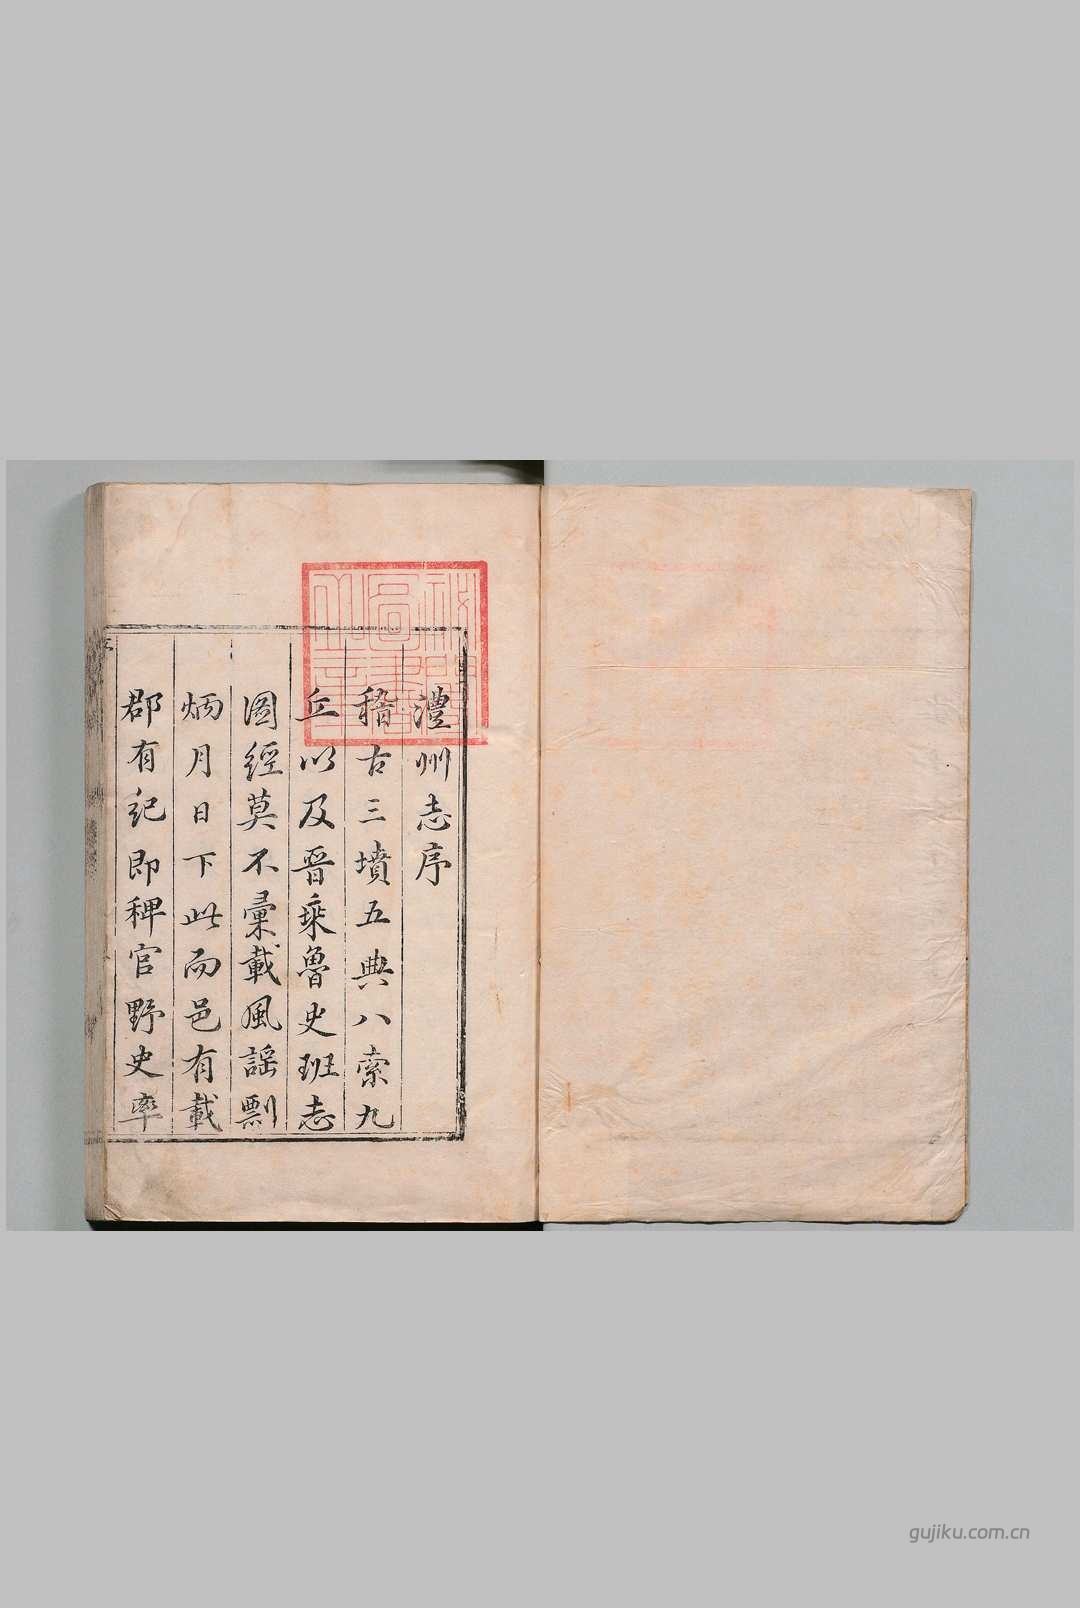 澧州志序
稽古三墳五典八索九
丘以及晋乘魯史班志
圖經莫不彙載風謡剽
炳月日下此而邑有載
郡有記即稗官野史率
gujiku.com.cn